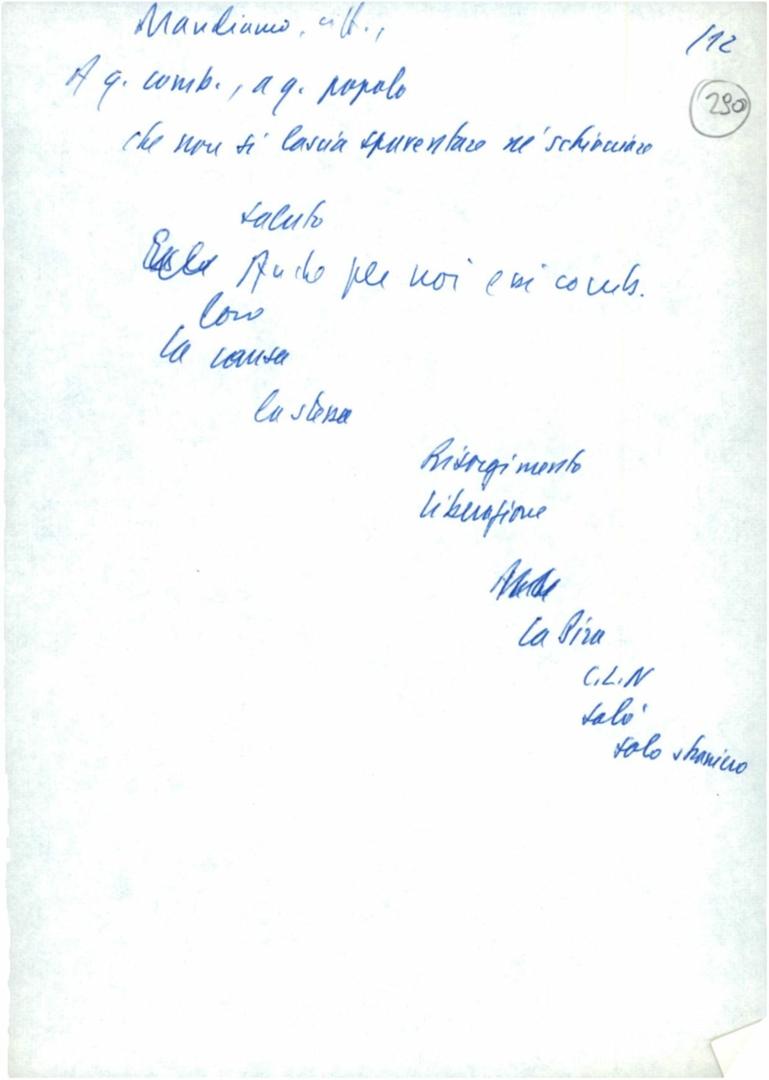 Mandiamo, citt.,
/12
290
A q. comb., a q. popolo
che non si lascia spaventare né schiacciare
saluto
Anche per noi essi comb.
loro
la causa
la stessa
Risorgimento
Liberazione
La Pira
C.L.N
Salò
solo straniero